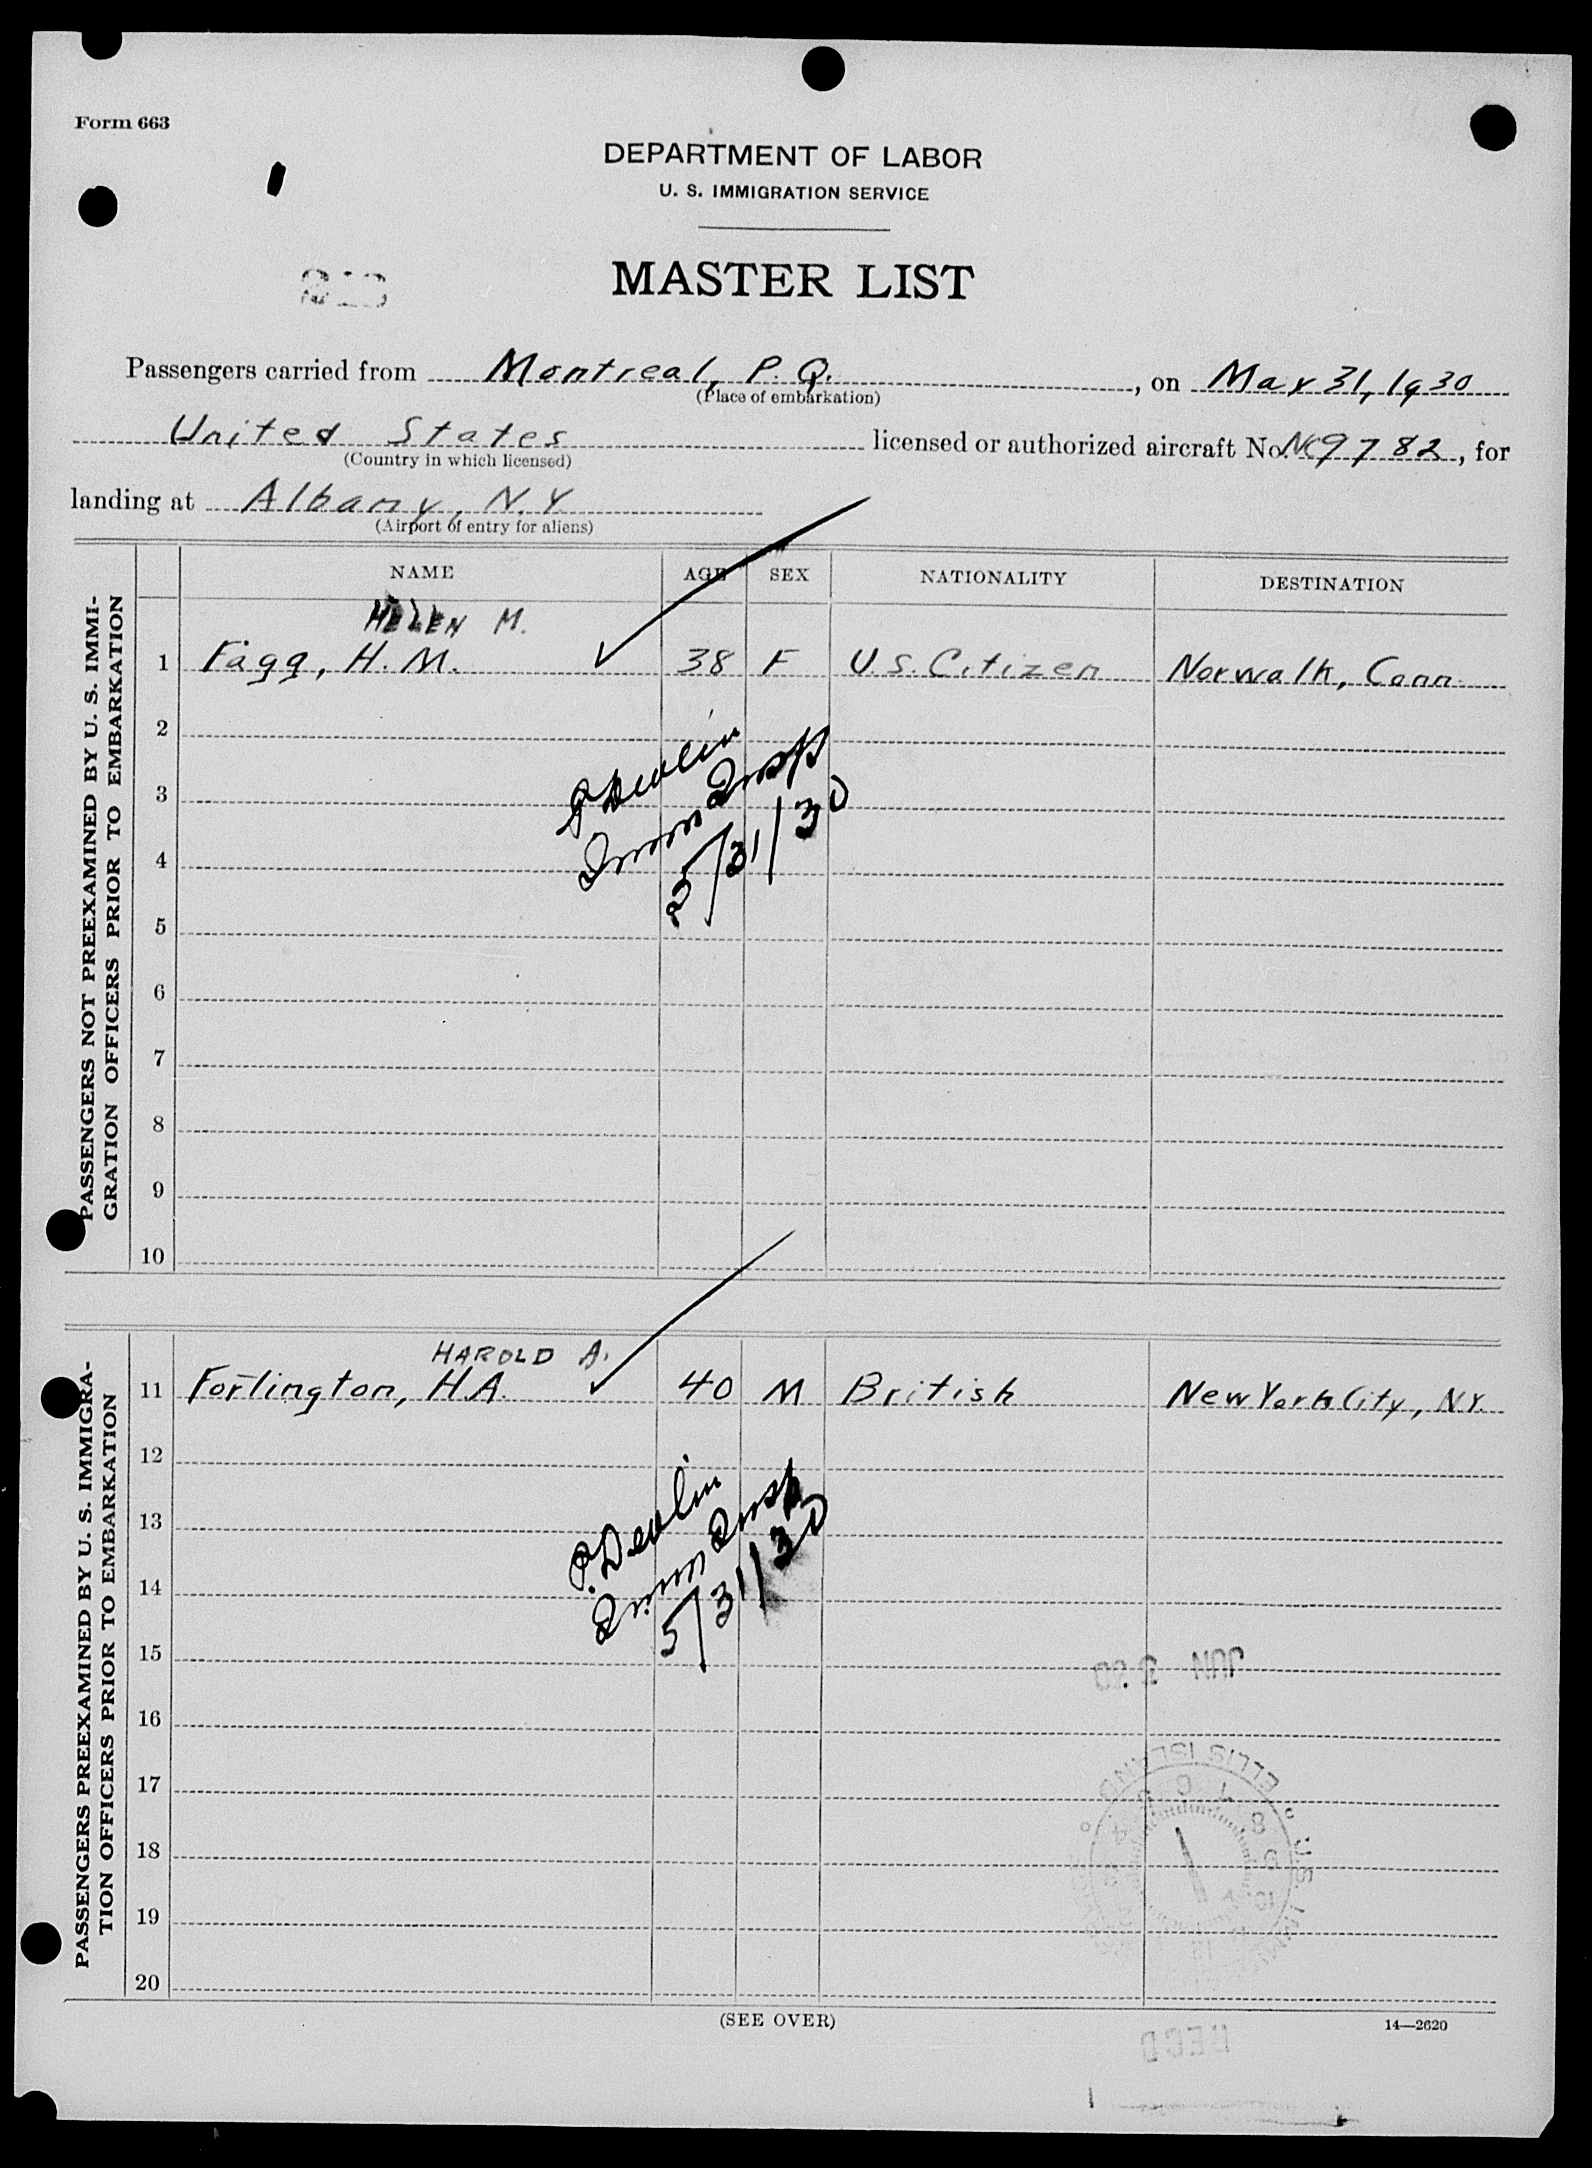 Form 663
DEPARTMENT OF LABOR
U. S. IMMIGRATION SERVICE
MASTER LIST
Passengers carried from Montreal, P. Q. , on May 31, 1930
(Place of embarkation)
United States licensed or authorized aircraft No. NC9782, for
(Country in which licensed)
landing at Albany, N.Y.
(Airport of entry for aliens)
PASSENGERS NOT PREEXAMINED BY U. S. IMMI-
GRATION OFFICERS PRIOR TO EMBARKATION
NAME AGE SEX NATIONALITY DESTINATION
HELEN M.
1 Fagg, H. M. 38 F U.S. Citizen Norwalk, Conn.
2
P Devlin
Imm Insp
5/31/30
3
4
5
6
7
8
9
10
PASSENGERS PREEXAMINED BY U. S. IMMIGRA-
TION OFFICERS PRIOR TO EMBARKATION
HAROLD A.
11 Forlington, H.A. 40 M British New York City, N.Y.
12
P. Devlin
Imm Insp
5/31/30
13
14
15
JUN 3 30
16
17
ELLIS ISLAND
18
U.S.
19
20
(SEE OVER)
14—2620
RECD